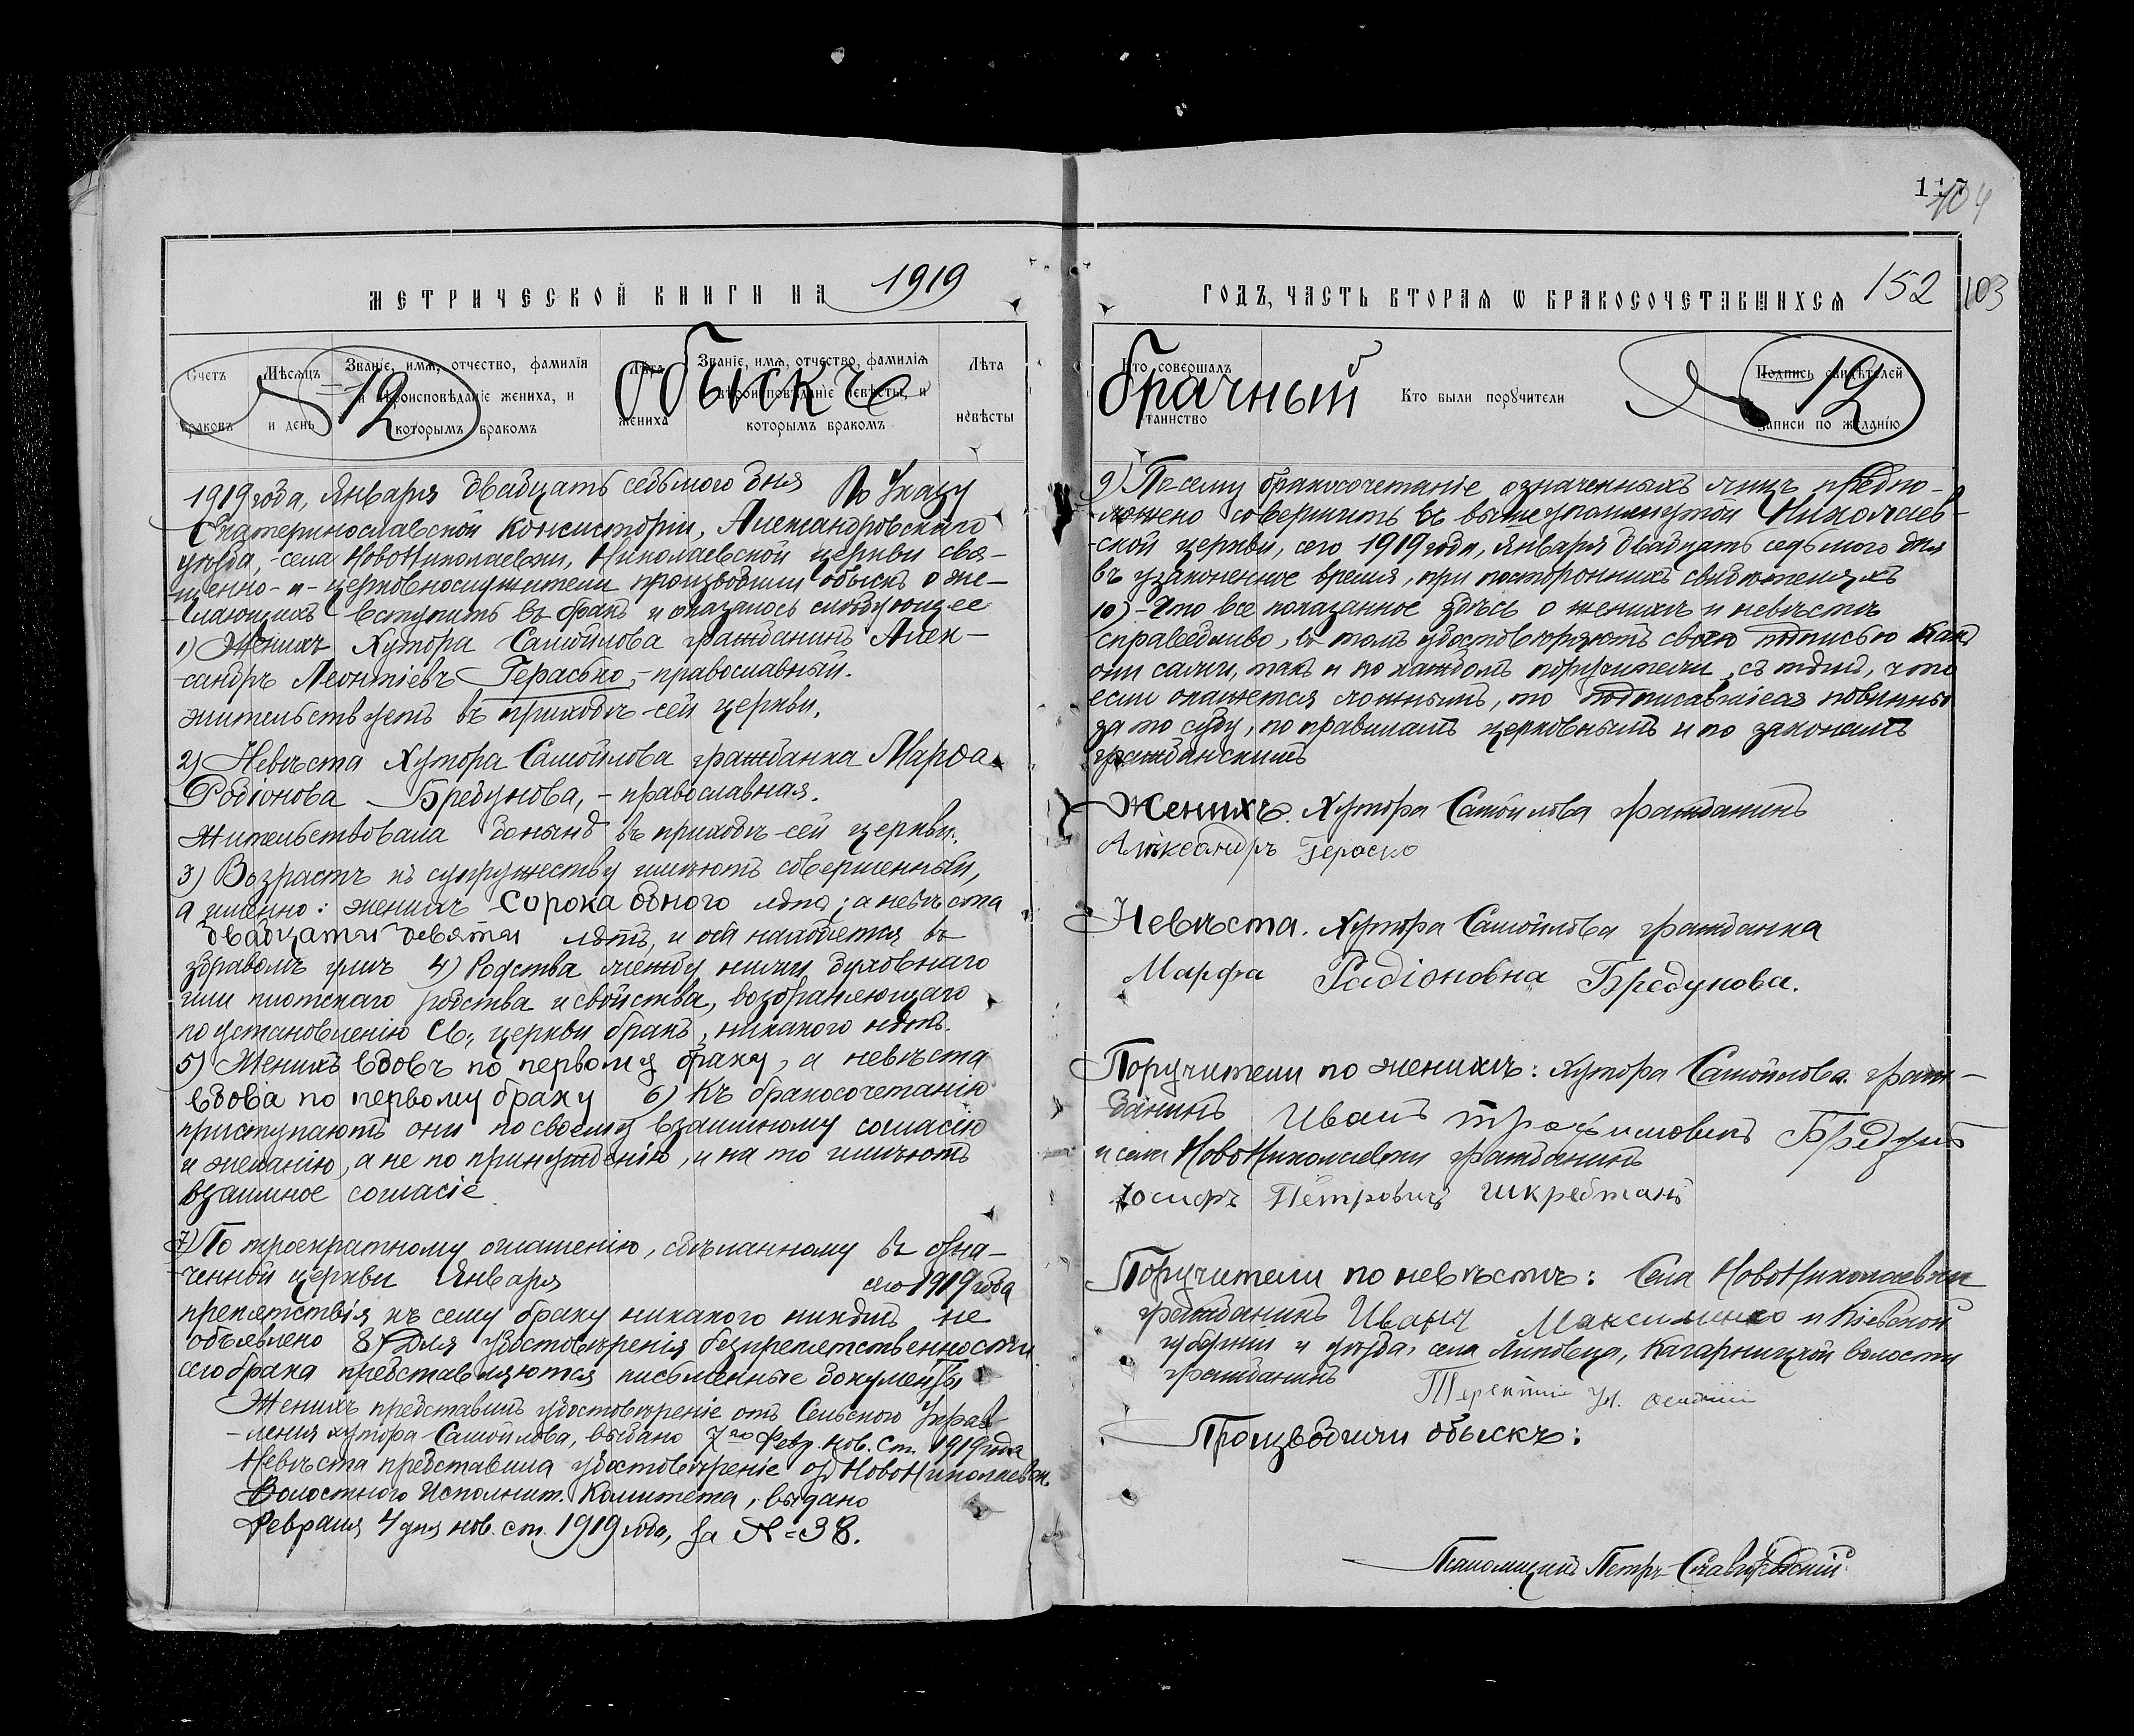 117
104
МЕТРИЧЕСКОЙ КНИГИ НА 1919
Счетъ браковъ
Мѣсяцъ и день
Званіе, имя, отчество, фамилія и вѣроисповѣданіе жениха, и которымъ бракомъ
Лѣта жениха
Званіе, имя, отчество, фамилія и вѣроисповѣданіе невѣсты, и которымъ бракомъ
Лѣта невѣсты
12
Обыскъ
1919 года, Января двадцать седьмого дня По Указу
Екатеринославской Консисторіи, Александровскаго
уѣзда, села НовоНиколаевки, Николаевской церкви свя-
щенно-и-церковнослужители производили обыскъ о же-
лающихъ вступить въ бракъ и оказалось слѣдующее
1) Женихъ Хутора Самойлова гражданинъ Алек-
сандръ Леонтіевъ Герасько, - православный.
жительствуетъ въ приходѣ сей церкви.
2) Невѣста Хутора Самойлова гражданка Марѳа
Родіонова Бредунова, - православная.
Жительствовала донынѣ въ приходѣ сей церкви.
3) Возрастъ къ супружеству имѣютъ совершенный,
а именно: женихъ сорока одного лѣта; а невѣста
двадцати девяти лѣтъ, и оба находятся въ
здравомъ умѣ 4) Родства между ними духовнаго
или плотскаго родства и свойства, возбраняющаго
по установленію Св. церкви бракъ, никакого нѣтъ.
5) Женихъ вдовъ по первому браку, а невѣста
вдова по первому браку 6) Къ бракосочетанію
приступаютъ они по своему взаимному согласію
и желанію, а не по принужденію, и на то имѣютъ
взаимное согласіе
7) По троекратному оглашенію, сдѣланному въ озна-
ченной церкви Января сего 1919 года
препятствія къ сему браку никакого никѣмъ не
объявлено 8) Для удостовѣренія безпрепятственности
сего брака представляются письменные документы
Женихъ представилъ удостовѣреніе отъ Сельского Управ
-ленія хутора Самойлова, выдано 7го Февр. нов. ст. 1919 года
Невѣста представила удостовѣреніе от НовоНиколаевск.
Волостного Исполнит. Комитета, выдано
Февраля 4 дня нов. ст. 1919 года, за №=38.
ГОДЪ, ЧАСТЬ ВТОРАЯ Ѡ БРАКОСОЧЕТАВШИХСЯ 152 103
Кто совершалъ таинство
Кто были поручители
Подпись свидѣтелей записи по желанію
брачный
12
9) По сему бракосочетаніе означенныхъ лицъ предпо-
ложено совершить въ вышеупомянутой Николаев-
-ской церкви, сего 1919 года, Января двадцать седьмого дня
въ узаконенное время, при постороннихъ свидѣтеляхъ
10) - Что все показанное здѣсь о женихѣ и невѣстѣ
справедливо, въ томъ удостовѣряютъ своею подписью как
они сами, такъ и по каждомъ поручители, съ тѣмъ, что
если окажется ложнымъ, то подписавшіеся повинны
за то суду, по правиламъ церковнымъ и по законамъ
гражданскимъ
Женихъ. Хутора Самойлова гражданинъ
Александръ Гераско
Невѣста. Хутора Самойлова гражданка
Марфа Радіоновна Бредунова.
Поручители по женихѣ: Хутора Самойлова граж-
данинъ Иванъ Трофимовичъ Бредунъ
и села НовоНиколаевки гражданинъ
Іосифъ Петровичъ Шкребтанъ
Поручители по невѣстѣ: Села НовоНиколаевки
гражданинъ Иванъ Максименко и Кіевской
губерніи и уѣзда, села Липовца, Кагарлицкой волости
гражданинъ Терентій
Производили обыскъ:
Псаломщикъ Петръ Славгородскій